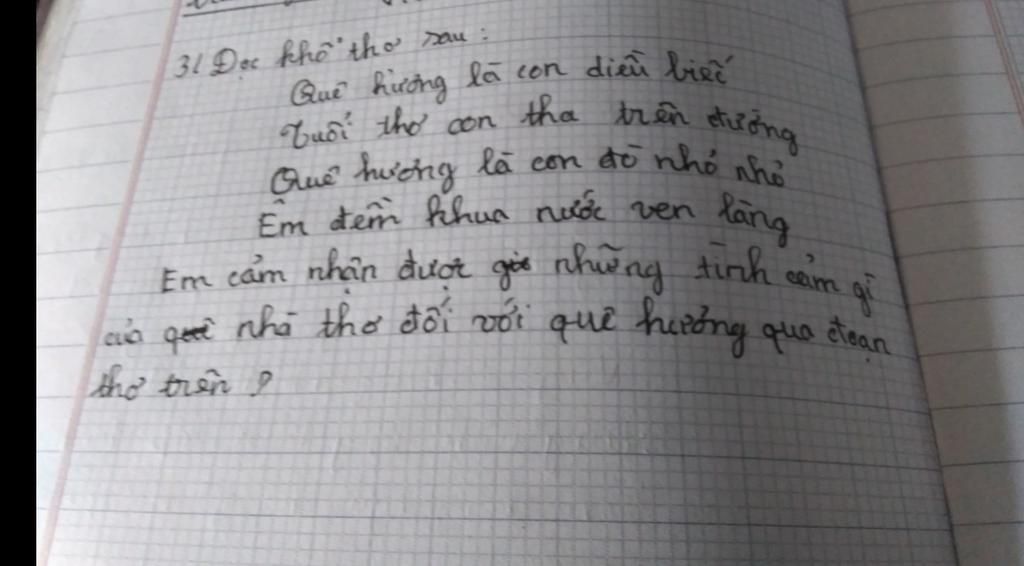 3/ Đọc khổ thơ sau:
Quê hương là con diều biếc
Tuổi thơ con tha trên đường
Quê hương là con đò nhỏ nhỏ
Êm đềm khua nước ven làng
Em cảm nhận được những tình cảm gì
của nhà thơ đối với quê hương qua đoạn
thơ trên?